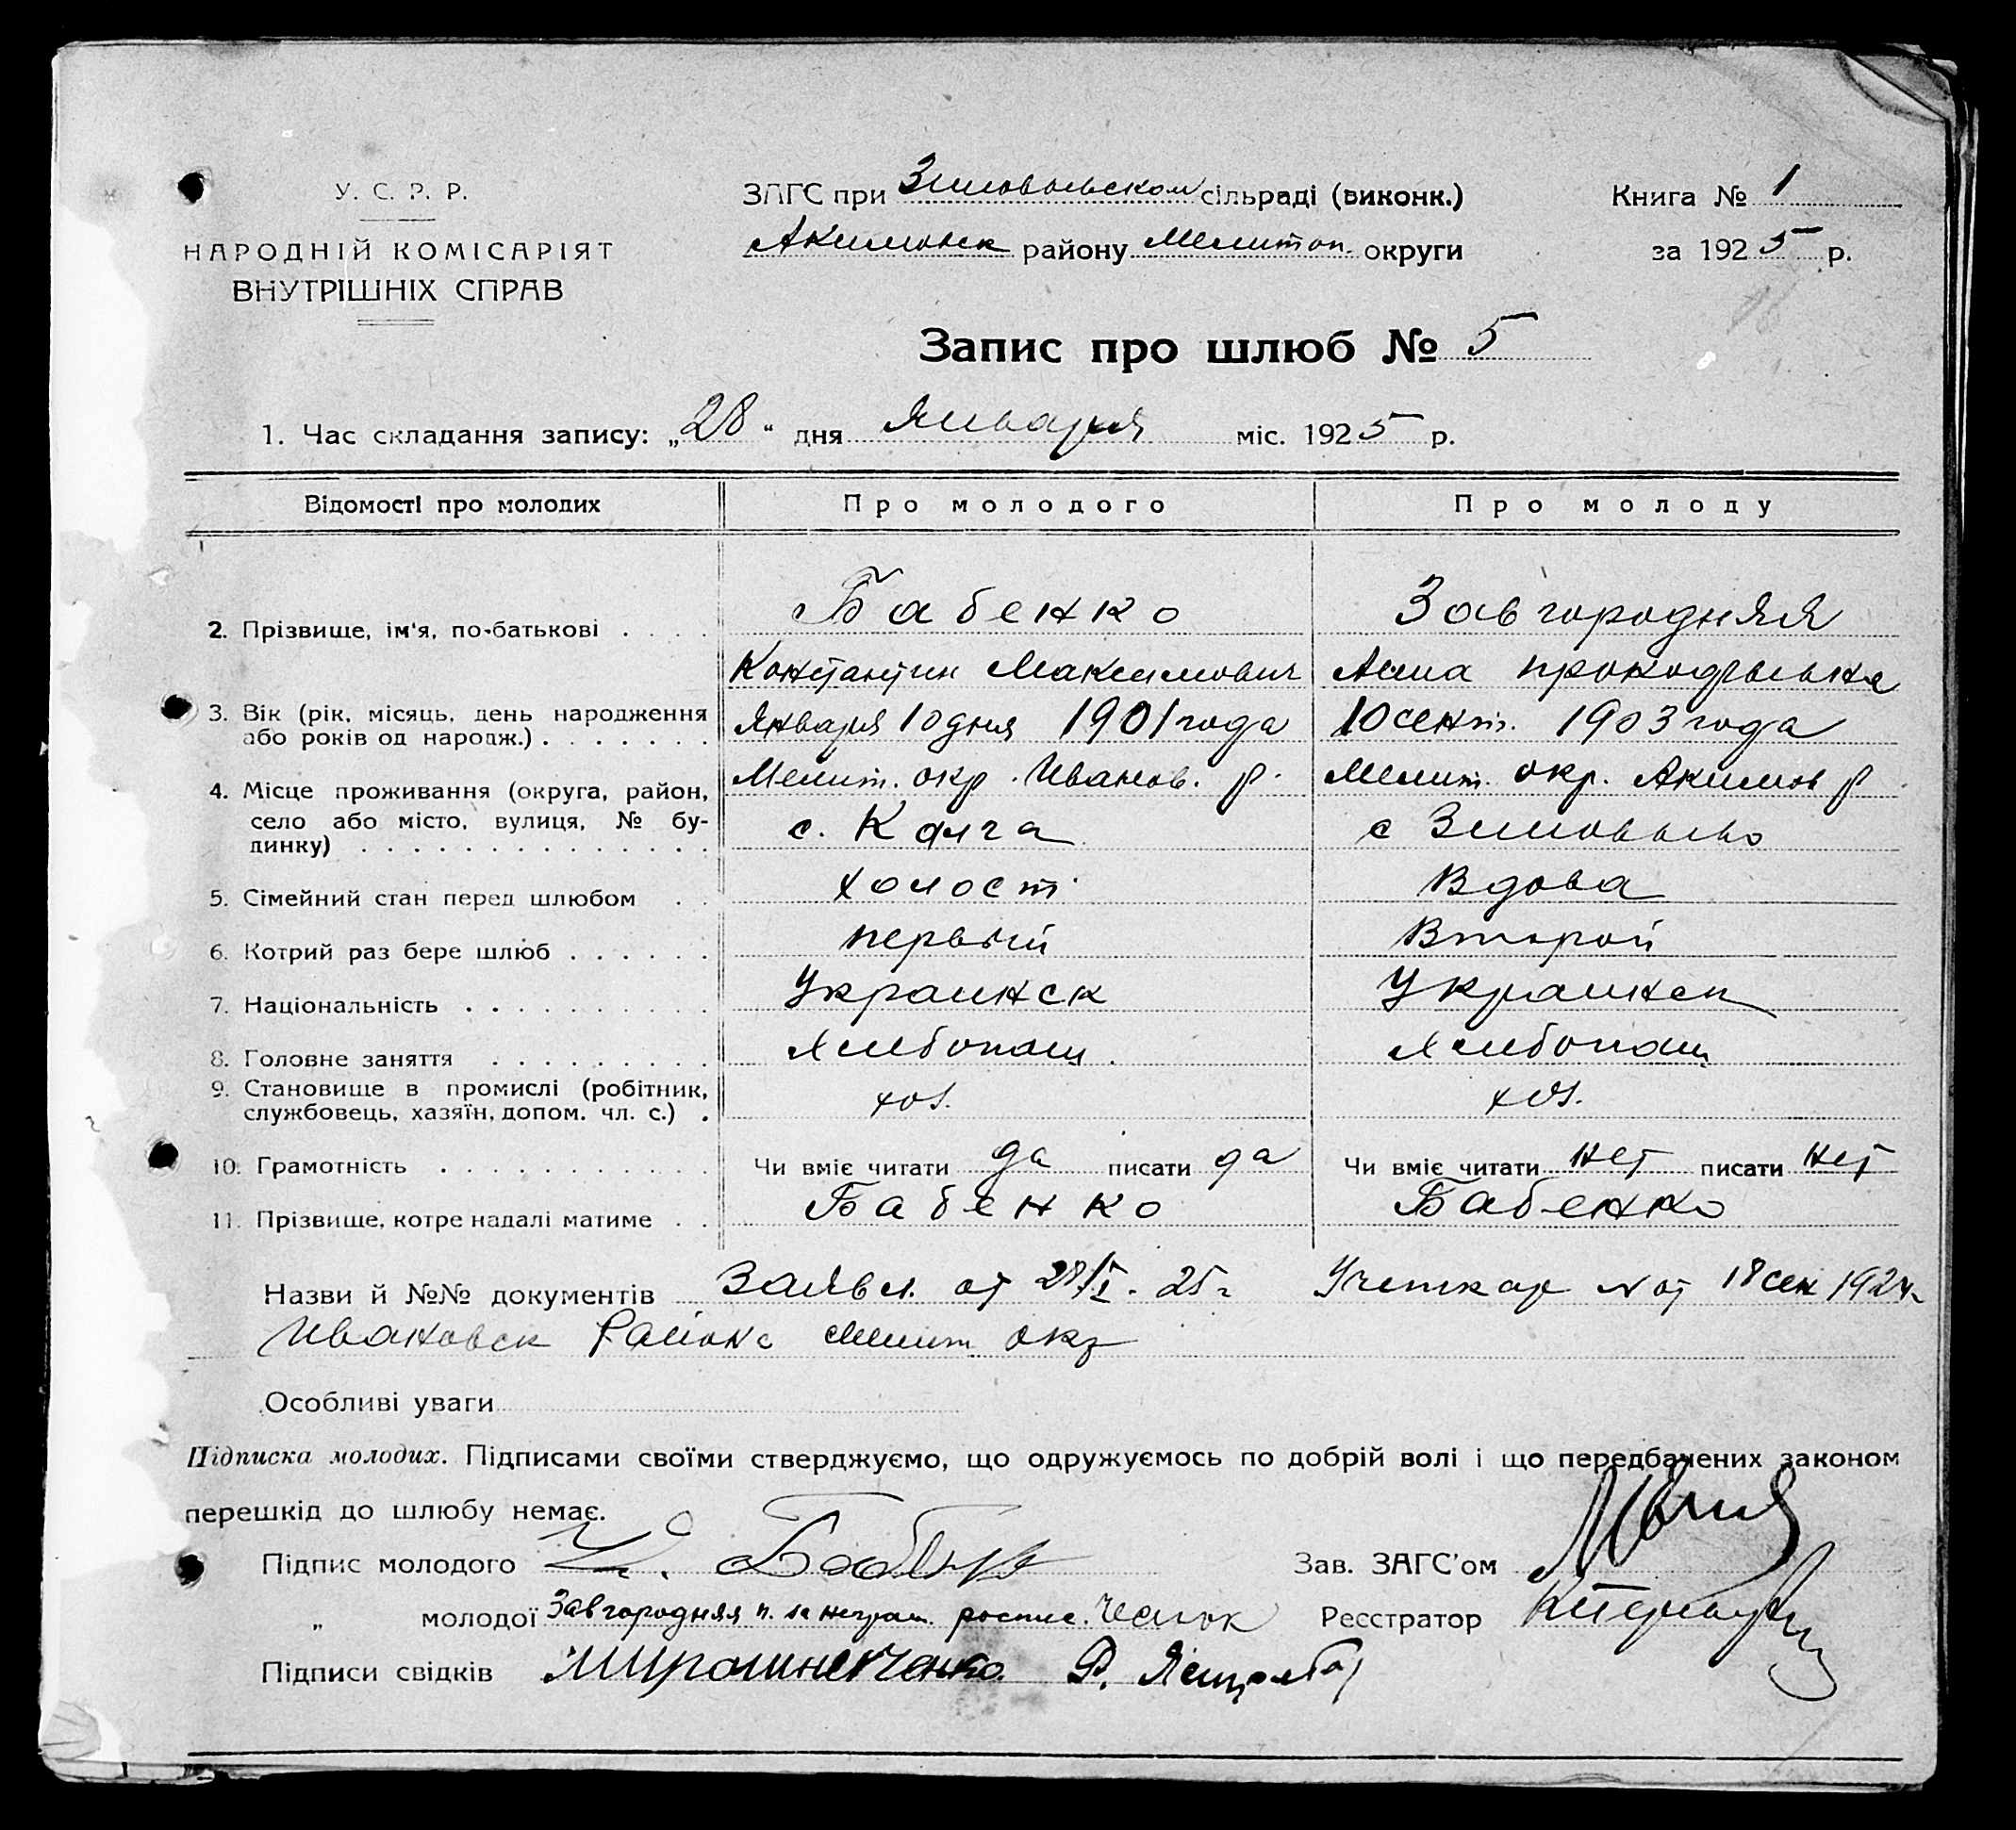 У. С. Р. Р.
НАРОДНІЙ КОМІСАРІЯТ
ВНУТРІШНІХ СПРАВ
ЗАГС при Зиновьевском сільраді (виконк.)
Акимовск району Мелитоп. округи
Книга № 1
за 1925 р.
Запис про шлюб № 5
1. Час складання запису: „28“ дня Января міс. 1925 р.
Відомості про молодих Про молодого Про молоду
2. Прізвище, ім'я, по-батькові . . . . Бабенко Завгородняя
Константин Максимович Анна Прокофьевна
3. Вік (рік, місяць, день народження Января 10 дня 1901 года 10 сент. 1903 года
або років од народж.) . . . . . . .
4. Місце проживання (округа, район, Мелит. окр. Иванов. р. Мелит. окр. Акимов р
село або місто, вулиця, № бу- с. Калга с Зиновьево
динку) . . . . . . . . . . . . . .
5. Сімейний стан перед шлюбом . . холост Вдова
6. Котрий раз бере шлюб . . . . . . первый Второй
7. Національність . . . . . . . . . Украинск Украинск
8. Головне заняття . . . . . . . . Хлебопаш. Хлебопаш
9. Становище в промислі (робітник,
службовець, хазяїн, допом. чл. с.) . хоз. хоз.
10. Грамотність . . . . . . . . . . Чи вміє читати да писати да Чи вміє читати нет писати нет
11. Прізвище, котре надалі матиме . . Бабенко Бабенко
Назви й №№ документів Заявл. от 28/I. 25 г Учеткар № от 18 сен 1924 г
Ивановск Района Мелит окр
Особливі уваги
Підписка молодих. Підписами своїми стверджуємо, що одружуємось по добрій волі і що передбачених законом
перешкід до шлюбу немає.
Підпис молодого Зав. ЗАГС'ом
„ молодої Завгородняя п. за неграм. роспис. Реєстратор
Підписи свідків Мирошниченко